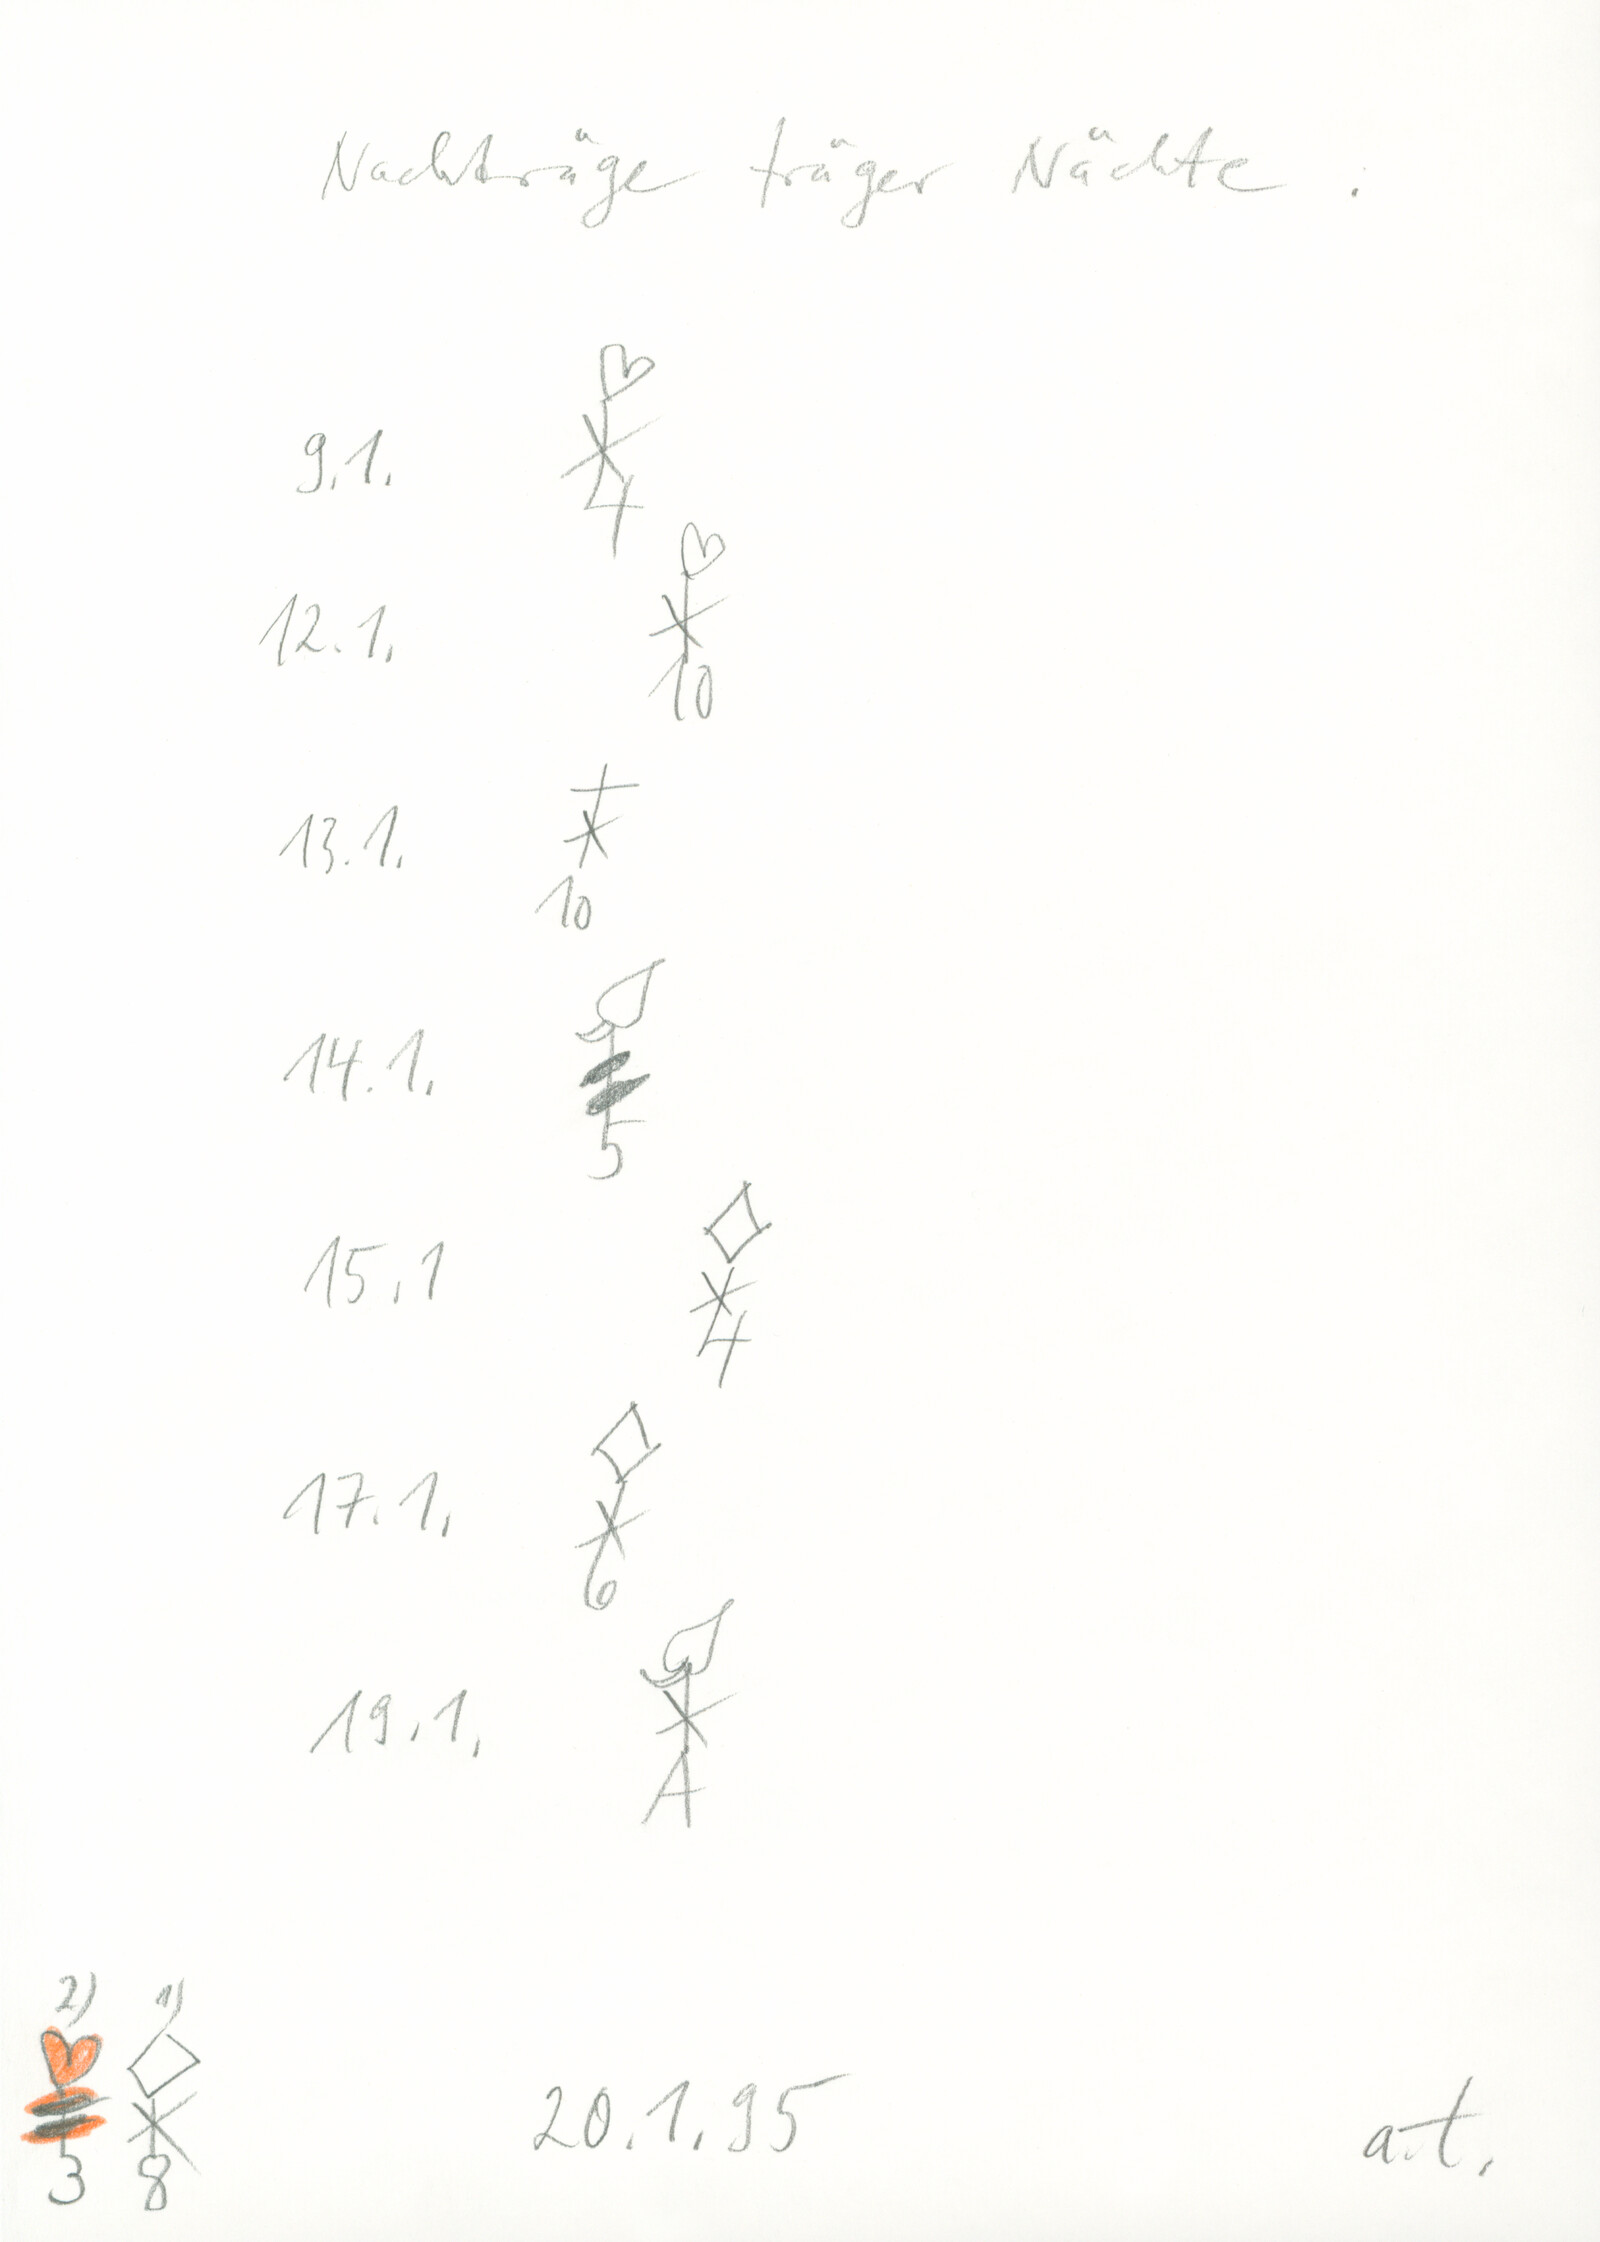 Nachträge träger Nächte :
9.1. 4
12.1. 10
13.1. 10
14.1. 5
15.1 4
17.1. 6
19.1. A
2) 1)
3 8
20.1.95
a.t.